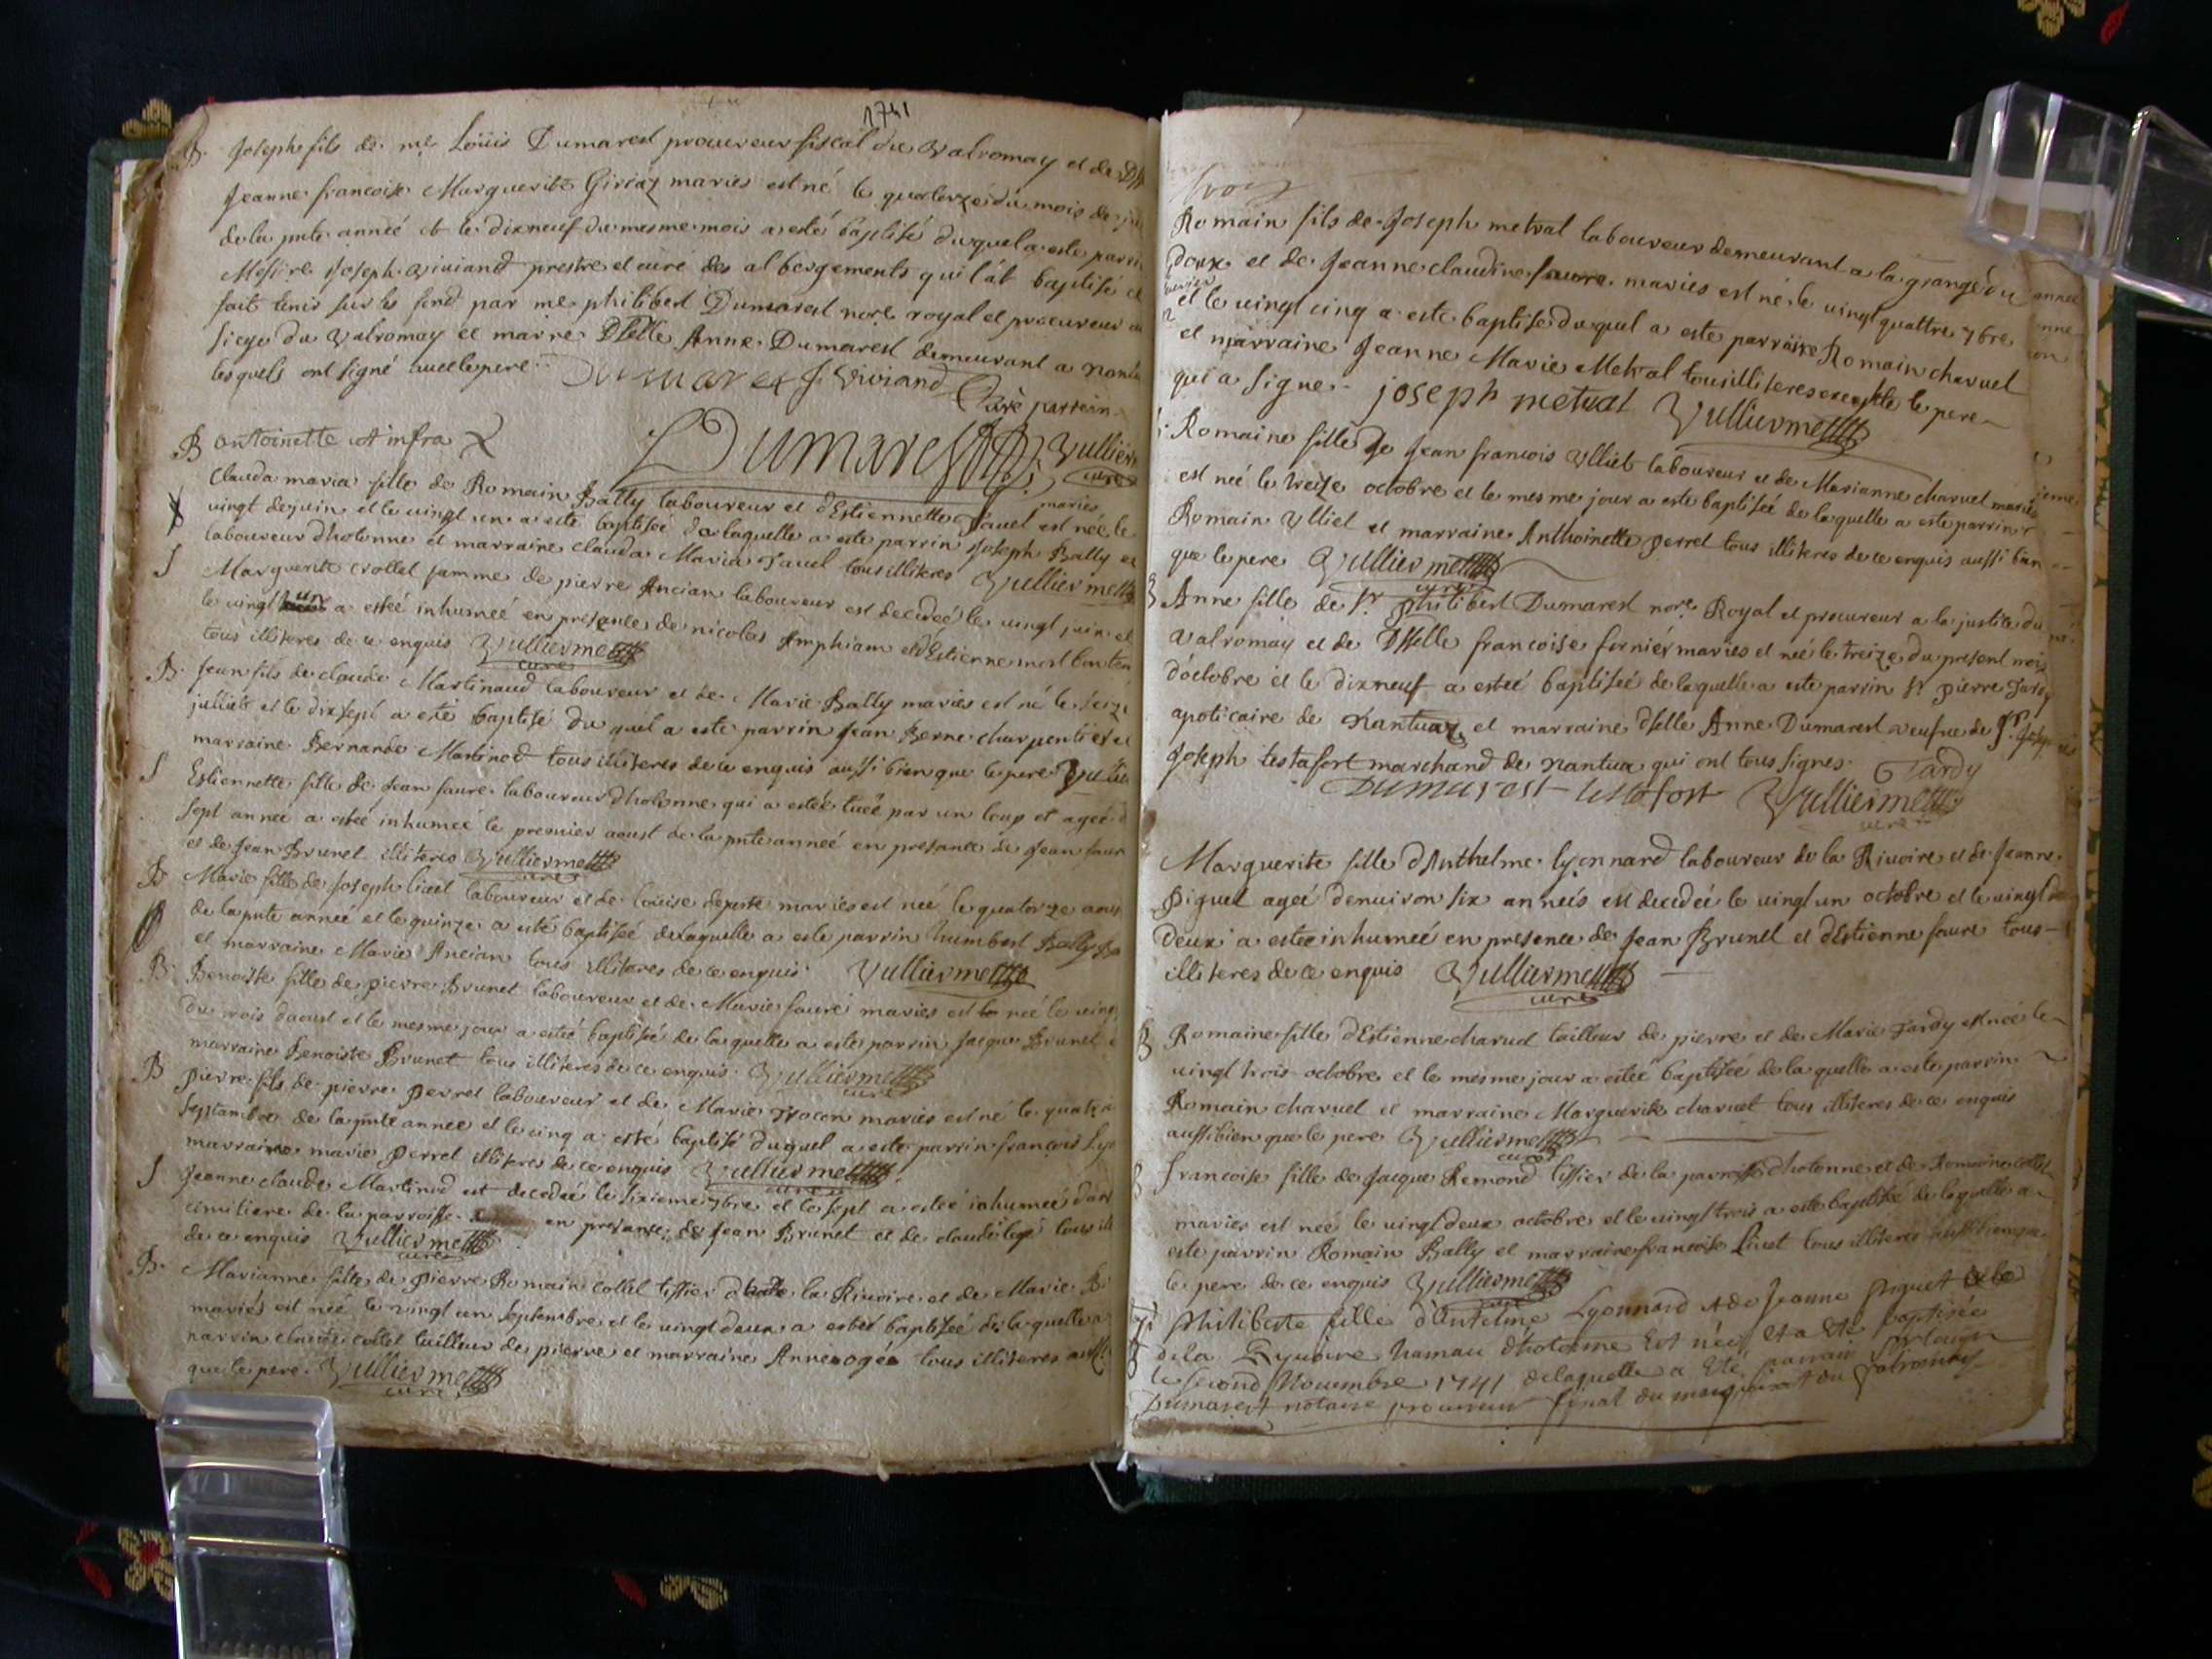 1741
B. Joseph fils de me Loüis Dumarest procureur fiscal du valromay et de
Jeanne francoise Marguerite mariés est né le quatorze du mois de
de la pnte année et le dixneuf du mesme mois a esté baptisé duquel a este parrin
Messire Joseph viviand prestre et curé des albergements qui l'at baptisé et
fait tenir sur les fond par me philibert Dumarest nore royal et procureur au
siege du valromay et marne Dselle Anne Dumarest demeurant a
lesquels ont signé avec le pere Dumarest J. Viviand
Curé parrein
B antoinette ut infra Dumarest vullierme
curé
mariés
clauda maria fille de Romain Bally laboureur et d'Estiennette Tavel est née le
vingt de juin et le vingt un a esté baptisée de laquelle a este parrin Joseph Bally
laboureur d'hotonne et marraine clauda Maria Tavel tous illiteres vullierme
S Marguerite crollet famme de pierre Ancian laboureur est decedeé le vingt juin et
le vingt un a esteé inhumeé en présance de nicolas Amphiam et d'Estienne
tous illiteres de ce enquis vullierme
curé
B. Jean fils de claude Martinaud laboureur et de Marie Bally mariés est né le seize
julliet et le dixsept a esté baptisé du quel a este parrin Jean Berne charpentier et
marraine Bernarde Martinod tous illiteres de ce enquis aussi bien que le pere
S Estiennette fille de Jean faure laboureur d'hotonne qui a esteé tueé par un loup et ageé
sept annee a esteé inhumeé le premier aoust de la pnte anneé en presance de Jean faure
et de Jean Brunet illiteres vullierme
curé
B Marie fille de Joseph livet laboureur et de Loüise mariés est née le quatorze aoust
de la pnte anneé et le quinze a esté baptiseé de laquelle a este parrin humbert Bally
et marraine Marie Ancian tous illiteres de ce enquis vullierme
B Benoiste fille de pierre Brunet laboureur et de Marie faure mariés est née le
du mois daoust et le mesme jour a esteé baptiseé de laquelle a este parrin Jacque Brunet
marraine Benoiste Brunet tous illiteres de ce enquis vullierme
curé
B pierre fils de pierre perret laboureur et de Marie mariés est né le quatre
septambre de la pnte annee et le cinq a esté baptisé duquel a este parrin francois
marraine marie perret illiteres de ce enquis vullierme
curé
S Jeanne claude Martinod est decedeé le sixieme 7bre et le sept a esteé inhumeé dans
cimitiere de la parroisse en presance de Jean Brunet et de claude tous
de ce enquis vullierme
curé
B. Marianne fille de pierre Romain collet tissier de la Rivoire et de Marie
mariés est née le vingt un septembre et le vingt deux a esteé baptiseé de laquelle a
parrin claude collet tailleur de pierre et marraine Anne ogée tous illiteres aussi
que le pere. vullierme
curé
Romain fils de Joseph metral laboureur demeurant a la grange du
doux et de Jeanne claudine faure mariés est né le vingt quattre 7bre
et le vingt cinq a este baptisé duquel a este parraire Romain charvel
et marraine Jeanne Marie Metral tous illiteres excepte le pere
qui a signe joseph metral vullierme
Romaine fille de Jean francois vlliet laboureur et de Marianne charvel mariés
est neé le treize octobre et le mesme jour a este baptiseé de laquelle a este parrin
Romain vlliet et marraine Anthoinette perret tous illiteres de ce enquis aussi bien
que le pere vullierme
curé
B Anne fille de Sr philibert Dumarest nore Royal et procureur a la justice du
valromay et de Dselle francoise fornier mariés et neé le treize du present mois
d'octobre et le dixneuf a esteé baptiseé de laquelle a este parrin Sr pierre Tardy
apoticaire de Nantua et marraine dselle Anne Dumarest veufve de Sr
Joseph testafort marchand de nantua qui ont tous signes. Tardy
Dumarest testafort vullierme
curé
Marguerite fille d'Anthelme lyonnard laboureur de la Rivoire et de Jeanne
piguet ageé denviron six anneés est decedeé le vingt un octobre et le vingt
deux a esteé inhumeé en presence de Jean Brunet et d'Estienne faure tous
illiteres de ce enquis vullierme
curé
B Romaine fille d'Estienne charvel tailleur de pierre et de Marie Tardy est neé le
vingt trois octobre et le mesme jour a esteé baptiseé de la quelle a este parrin
Romain charvel et marraine Marguerite charvel tous illiteres de ce enquis
aussi bien que le pere vullierme
curé
B francoise fille de Jacque Remond tissier de la parroisse d'hotonne et de Romaine collet
mariés est neé le vingt deux octobre et le vingt trois a este baptiseé de laquelle a
este parrin Romain Bally et marraine francoise livet tous illiteres aussi bien que
le pere de ce enquis vullierme
curé
philiberte fille d'Antelme Lyonnard et de Jeanne piguet
B de la Ryvoire hamau d'hotonne est née et a été baptisée
le second Novembre 1741 de laquelle a été parrain Sr Louys
Dumarest notaire procureur fiscal du marquisat du valromay